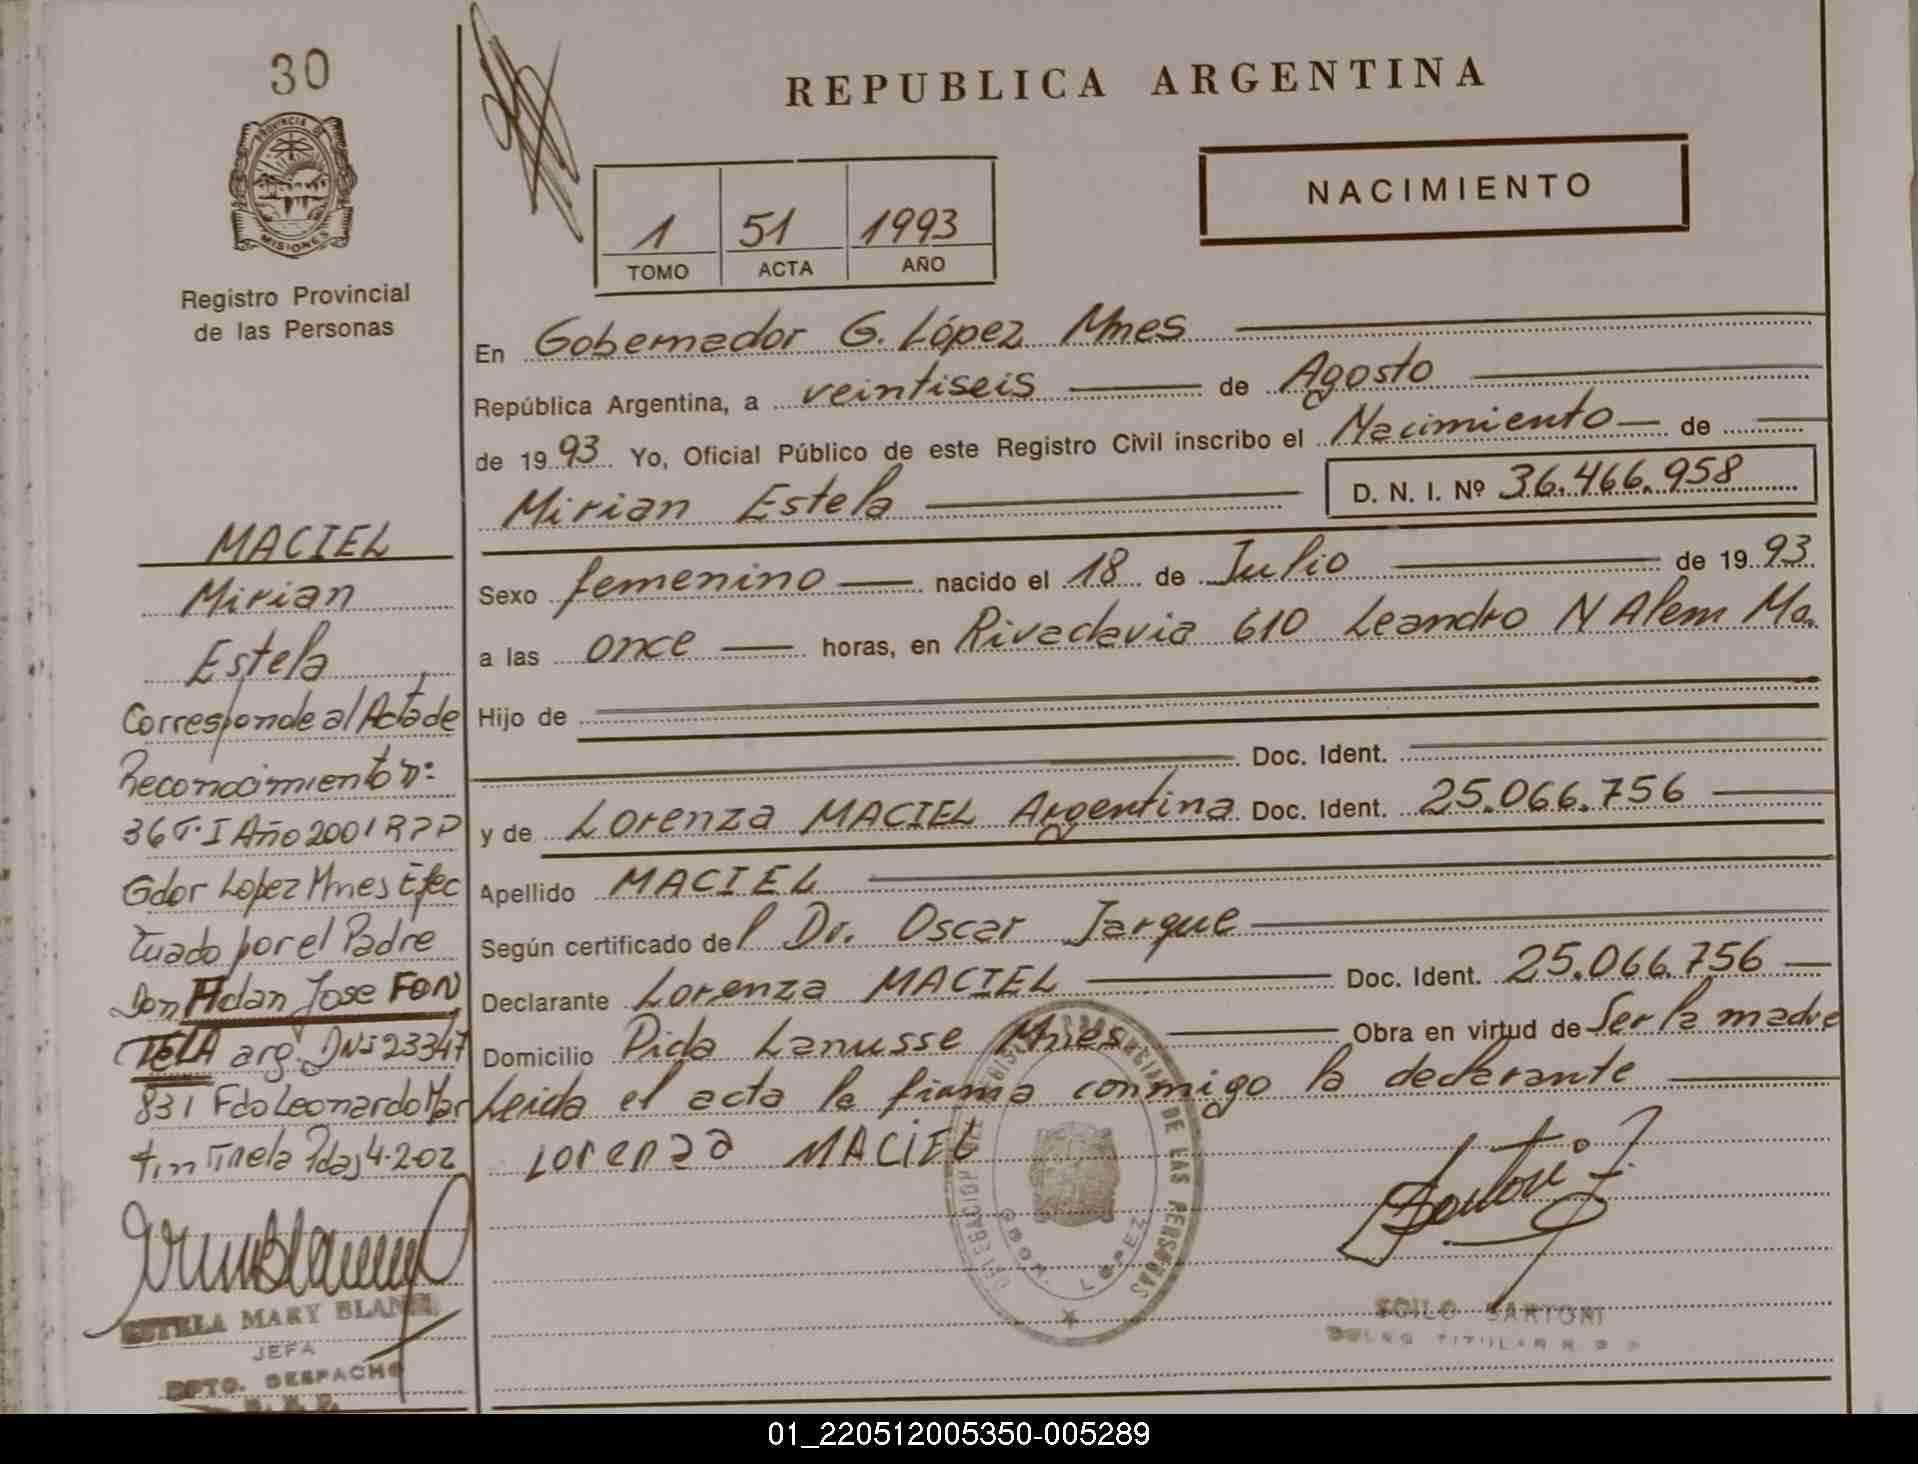 30
PROVINCIA DE
MISIONES
Registro Provincial
de las Personas
MACIEL
Mirian
Estela
Corresponde al Acta de
Reconocimiento nº:
36 T. I Año 2001 RPP
Gdor Lopez Mnes Efec
tuado por el Padre
Don Adan Jose FON
TELA arg. DNI 23347
831 Fdo Leonardo Mar
tin 4.202
ESTELA MARY
JEFA
DPTO. DESPACHO
REPUBLICA ARGENTINA
1 51 1993
TOMO ACTA AÑO
NACIMIENTO
En Gobernador G. López Mnes
República Argentina, a veintiseis de Agosto
de 1993 Yo, Oficial Público de este Registro Civil inscribo el Nacimiento de
Mirian Estela D. N. I. Nº 36.466.958
Sexo femenino nacido el 18 de Julio de 1993
a las once horas, en Rivadavia 610 Leandro N Alem Mo.
Hijo de
Doc. Ident.
y de Lorenza MACIEL Argentina Doc. Ident. 25.066.756
Apellido MACIEL
Según certificado del Dr. Oscar Jarque
Declarante Lorenza MACIEL Doc. Ident. 25.066.756
Domicilio Pida Lanusse Mnes Obra en virtud de Ser la madre
Leida el acta la firma conmigo la declarante
Lorenza MACIEL
DELEGACION DE LAS PERSONAS
GDOR. LOPEZ
SOILO SARTORI
TITULAR
01_220512005350-005289